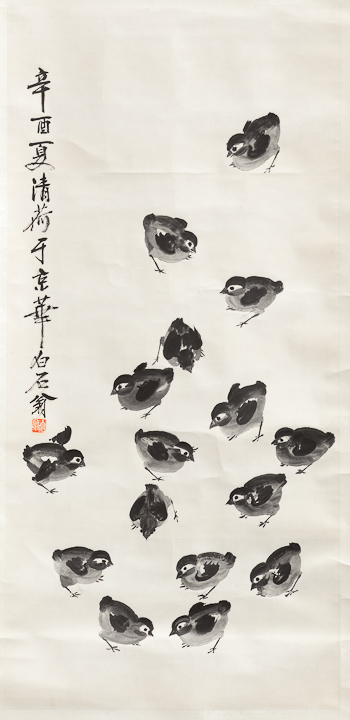 辛酉夏清荷于京華白石翁